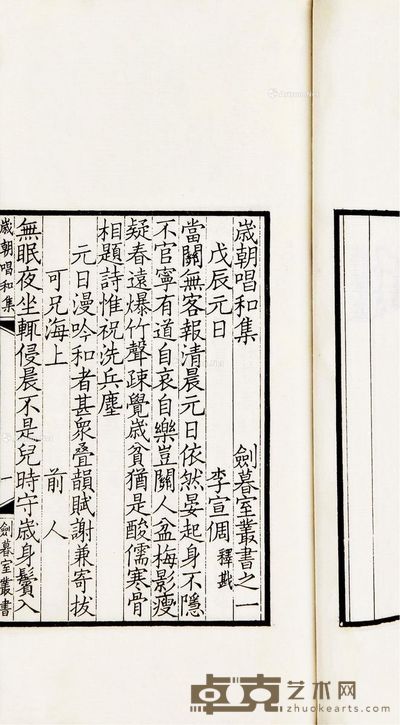 歲朝唱和集　劍暮室叢書之一
戊辰元日　李宣倜 釋戡
當關無客報清晨元日依然晏起身不隱
不官寧有道自哀自樂豈關人盆梅影瘦
疑春遠爆竹聲疎覺歲貧猶是酸儒寒骨
相題詩惟祝洗兵塵
元日漫吟和者甚衆疊韻賦謝兼寄拔
可兄海上　前人
無眠夜坐輒侵晨不是兒時守歲身鬢入
歲朝唱和集　一　劍暮室叢書
卓克艺术网
zhuokearts.com